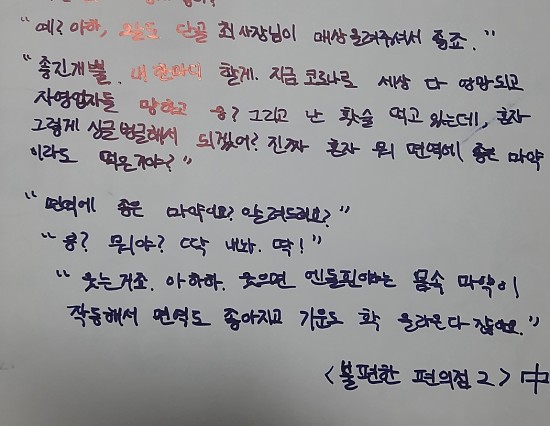 "예? 아하, 오늘도 단골 최사장님이 매상 올려주셔서 좋죠."
"좋긴개뿔. 내 한마디 할게. 지금 코로나로 세상 다 엉망되고
자영업자들 망하고 응? 그리고 난 홧술 먹고 있는데, 혼자
그렇게 싱글벙글해서 되겠어? 진짜 혼자 뭐 면역에 좋은 마약
이라도 먹은거야?"
"면역에 좋은 마약이요? 알려드려요?"
"응? 뭐야? 딱 내놔. 딱!"
"웃는거죠. 아하하. 웃으면 엔돌핀이라는 몸속 마약이
작동해서 면역도 좋아지고 기운도 확 올라온다잖아요."
<불편한 편의점 2> 中